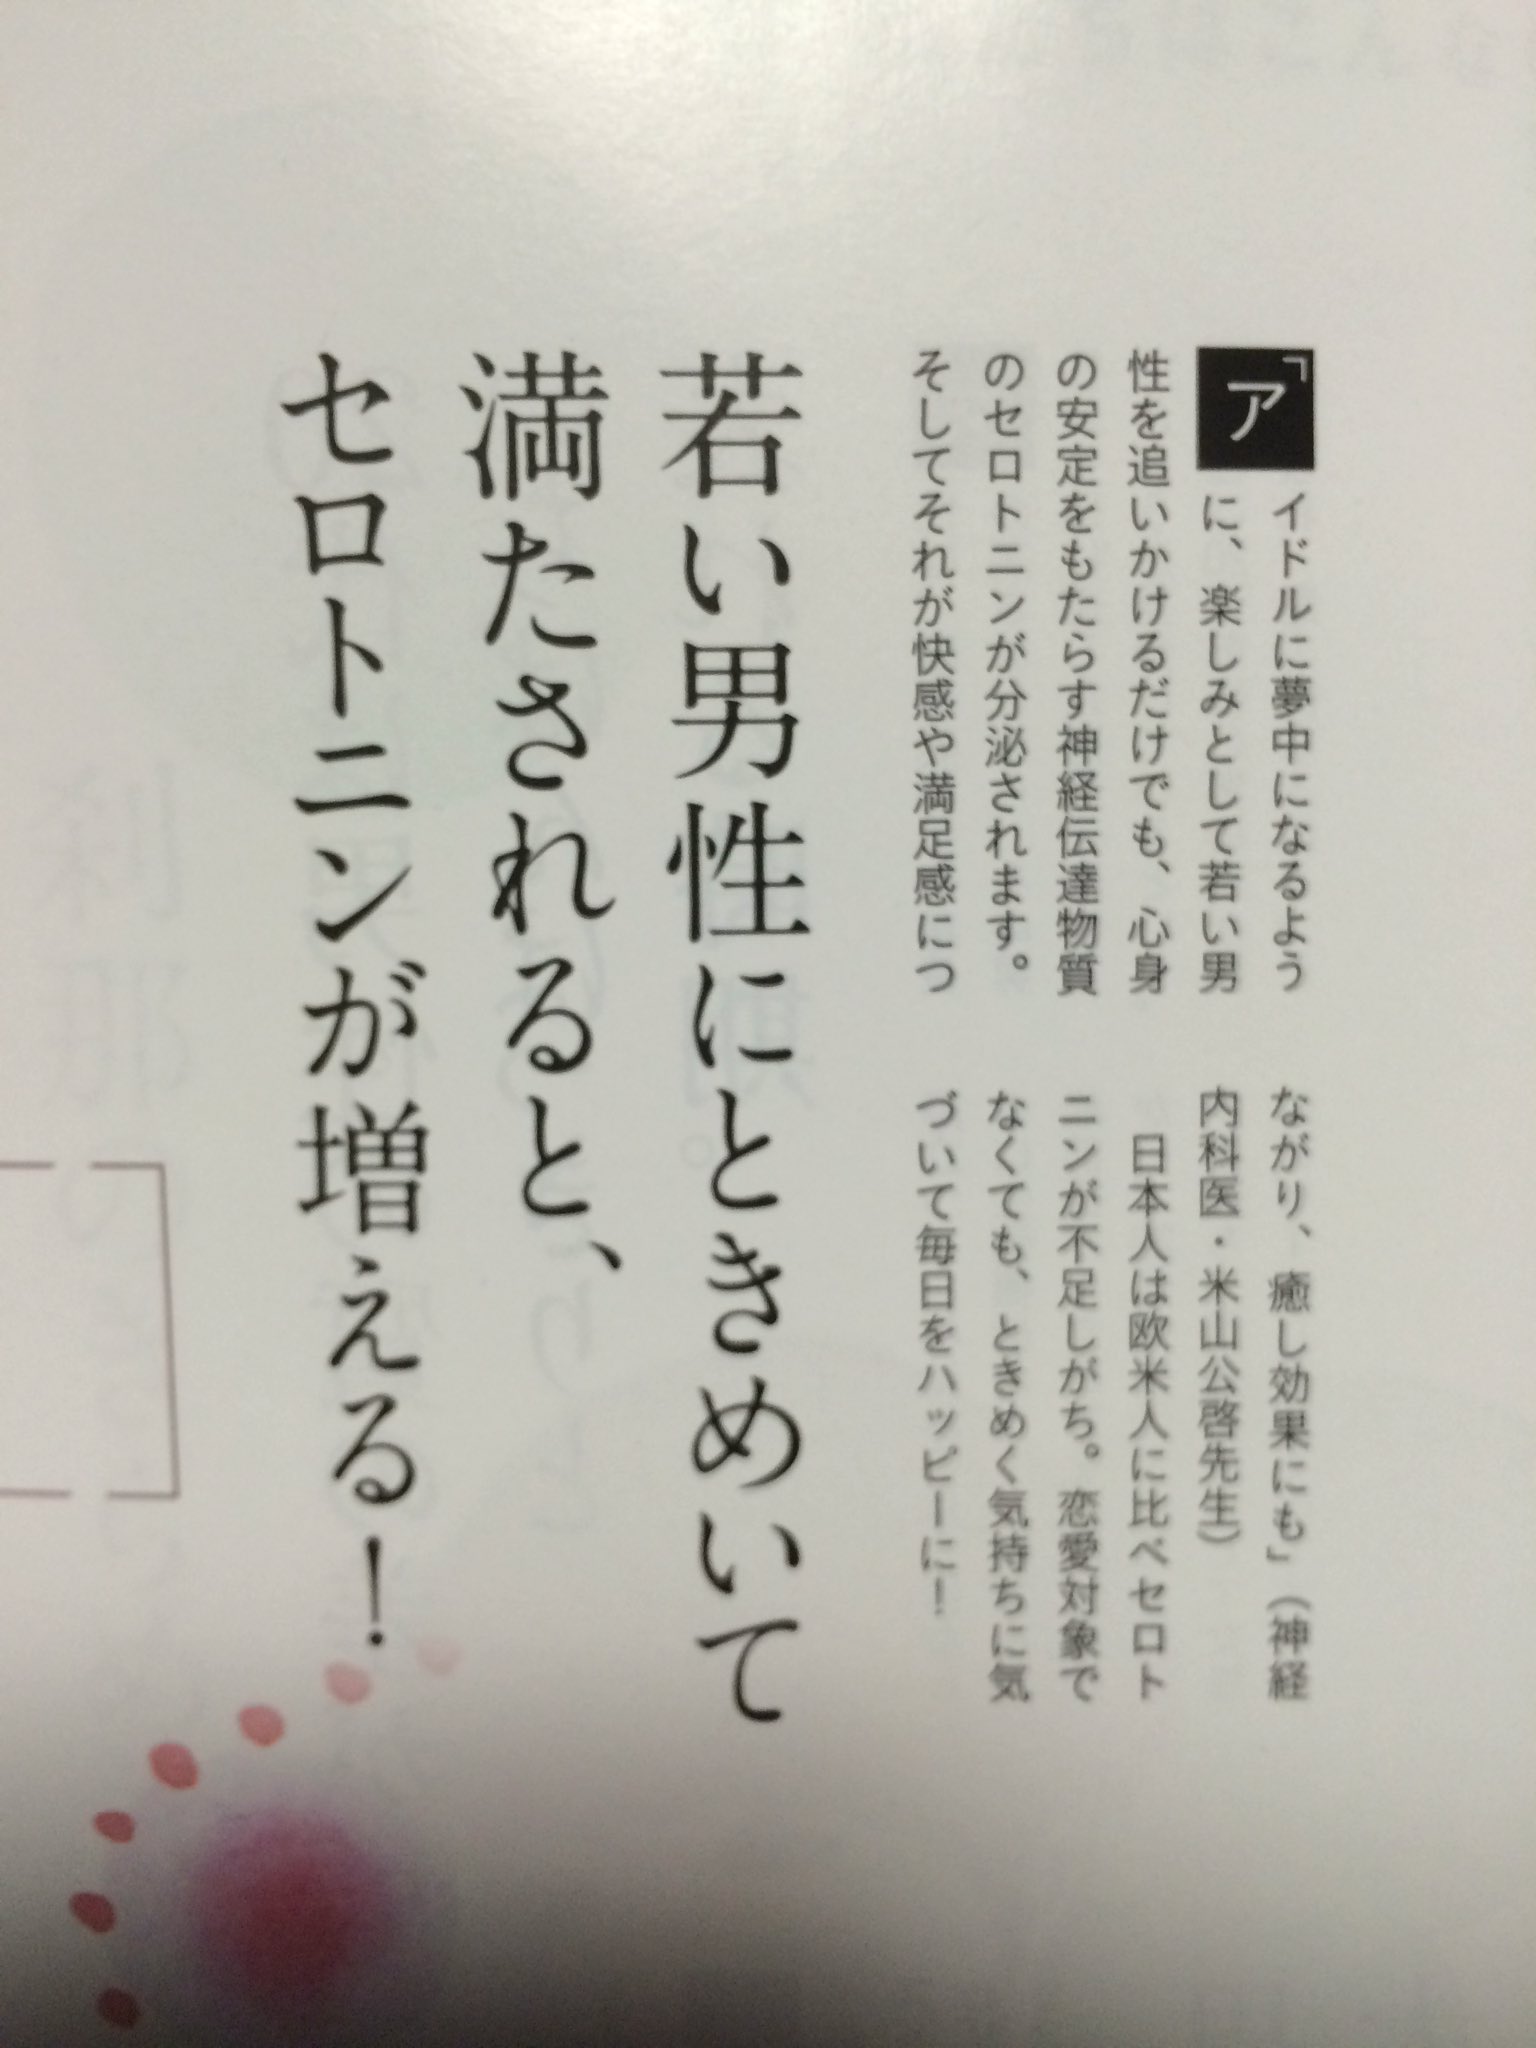 「アイドルに夢中になるよう
に、楽しみとして若い男
性を追いかけるだけでも、心身
の安定をもたらす神経伝達物質
のセロトニンが分泌されます。
そしてそれが快感や満足感につ
ながり、癒し効果にも」（神経
内科医・米山公啓先生）
日本人は欧米人に比べセロト
ニンが不足しがち。恋愛対象で
なくても、ときめく気持ちに気
づいて毎日をハッピーに！
若い男性にときめいて
満たされると、
セロトニンが増える！